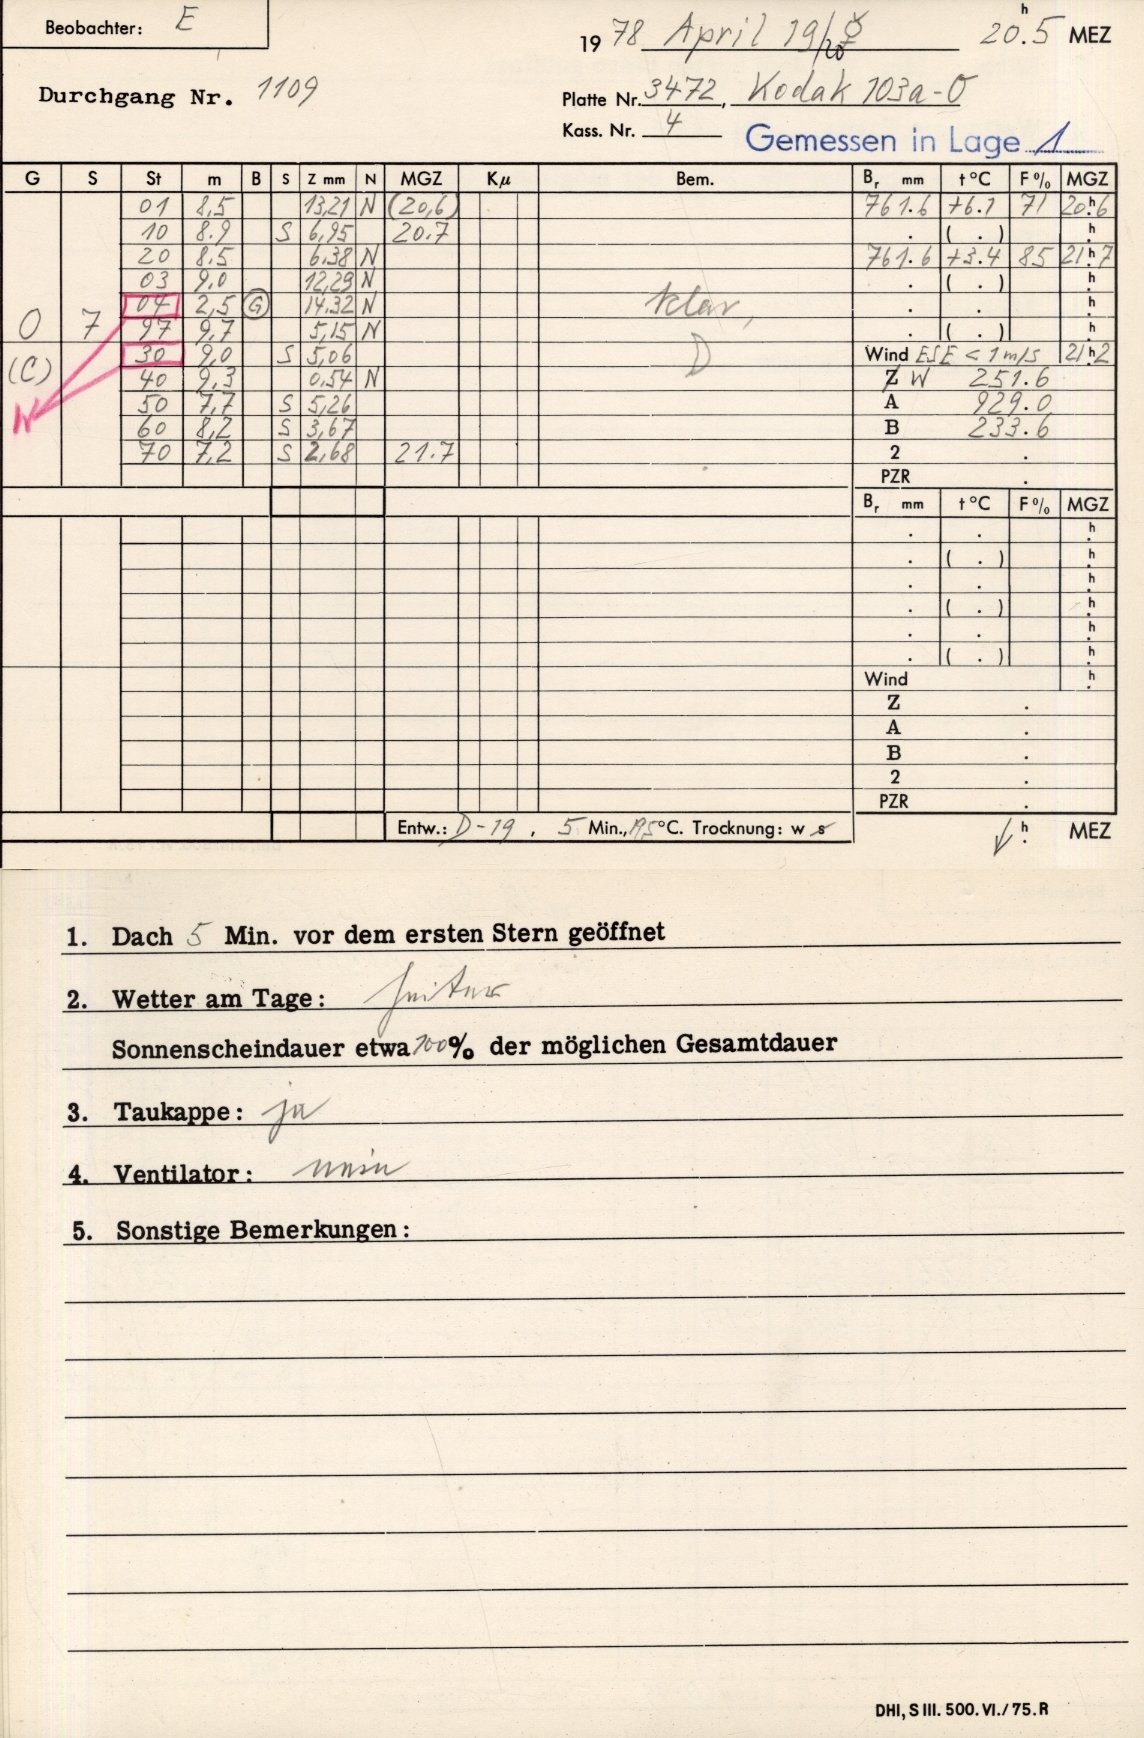 Beobachter: E
19 78 April 19/20 ☿ 20.5 h MEZ
Durchgang Nr. 1109
Platte Nr. 3472, Kodak 103a-O
Kass. Nr. 4
Gemessen in Lage 1
G S St m B S Z mm N MGZ Kμ Bem. Br mm t °C F % MGZ
01 8.5 13,21 N (20,6) 761.6 +6.1 71 20.h6
10 8.9 S 6,95 20.7 . ( . ) h
20 8.5 6.38 N 761.6 +3.4 85 21.h7
03 9,0 12,29 N . ( . ) h
04 2,5 G 14.32 N klar, . . h
0 7 97 9,7 5,15 N . ( . ) h
(C) 30 9,0 S 5,06 D Wind ESE < 1 m/s 21.h2
40 9,3 0,54 N Z W 251.6
N 50 7,7 S 5,26 A 929.0
60 8,2 S 3,67 B 233.6
70 7,2 S 2,68 21.7 2 .
PZR .
Br mm t °C F % MGZ
. . h
. ( . ) h
. . h
. ( . ) h
. . h
. ( . ) h
Wind h
Z .
A .
B .
2 .
PZR .
Entw.: D-19, 5 Min., °C. Trocknung: w s
h MEZ
1. Dach 5 Min. vor dem ersten Stern geöffnet
2. Wetter am Tage: heiter
Sonnenscheindauer etwa 100% der möglichen Gesamtdauer
3. Taukappe: ja
4. Ventilator: nein
5. Sonstige Bemerkungen:
DHI, S III. 500. VI./75. R